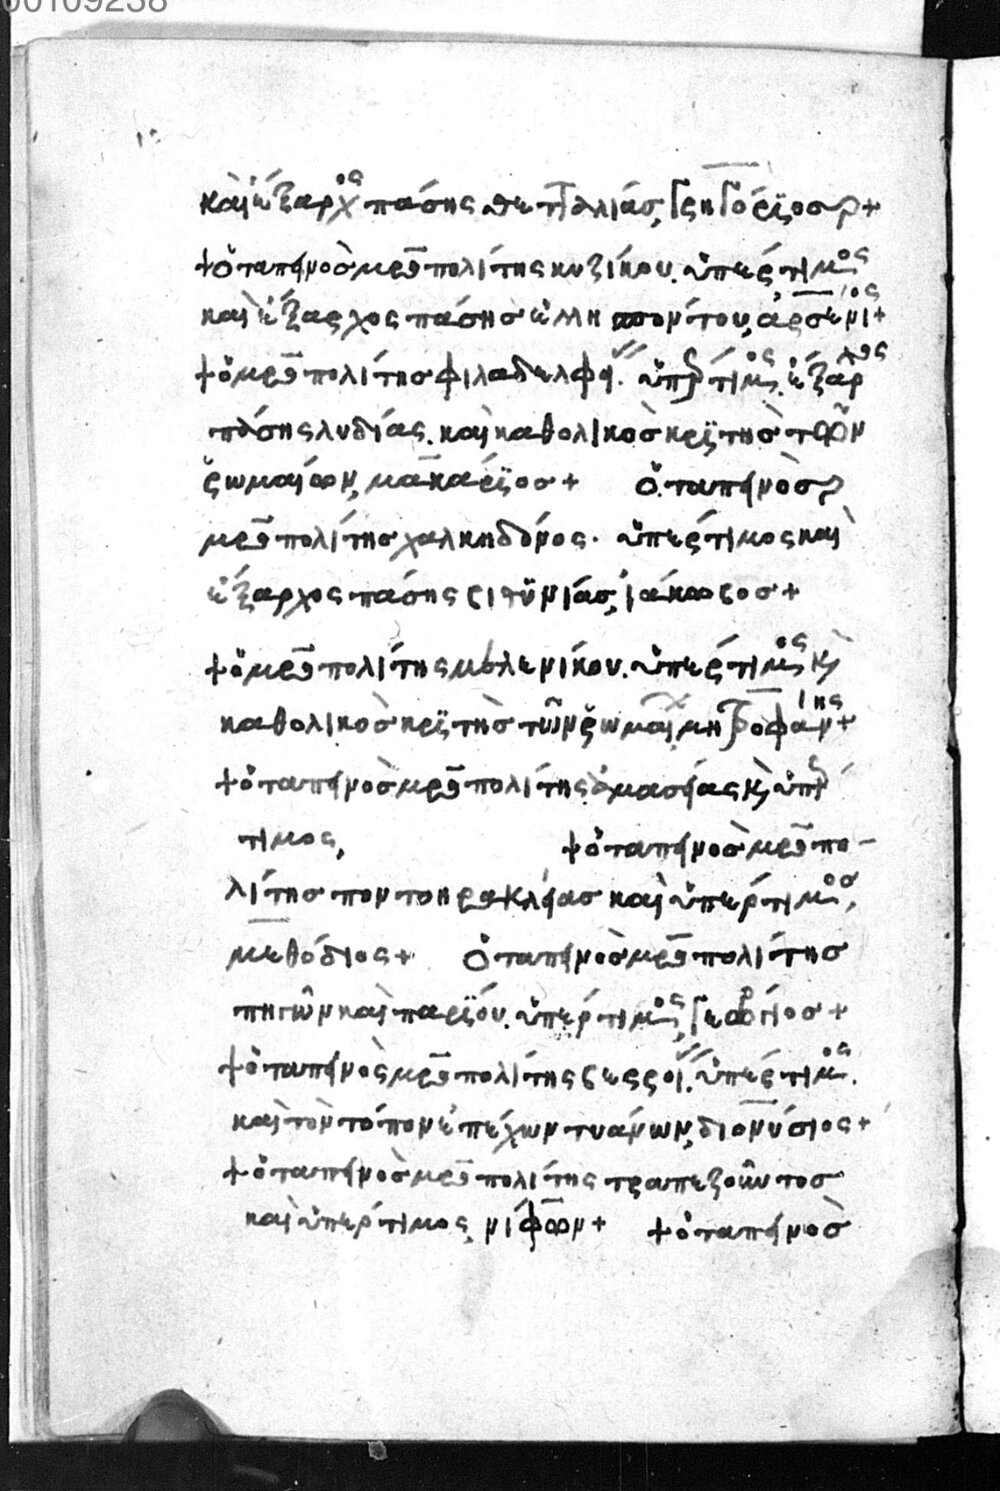 00109238
καὶ ἔξαρχος πάσης θετταλίας, γρηγόριος +
+ ὁ ταπεινὸς μρο̅πολίτης κυζίκου. ὑπέρτιμος
καὶ ἔξαρχος πάσησ ἑλλησπόντου, ἀρσένιος +
+ ὁ μρο̅πολίτησ φιλαδελφεί. ὑπέρτιμος. ἔξαρχος
πάσης λυδίας. καὶ καθολικὸσ κρϊτὴσ τῶν
ῥωμαίων, μακάρϊοσ + ὁ ταπεινὸσ
μρο̅πολίτησ χαλκηδόνος. ὑπέρτιμος καὶ
ἔξαρχος πάσης βιθϋνίασ, ἰάκωβοσ +
+ ὁ μρο̅πολίτης μελενίκου. ὑπέρτιμος κὶ
καθολικὸσ κρϊτὴσ τῶν ῥωμαί, μητροφάνης +
+ ὁ ταπεινὸσ μρο̅πολίτης ἀμασείας κὶ ὑπέρ
τιμος, + ὁ ταπεινὸσ μρο̅πο-
λίτησ ποντοηρακλείασ καὶ ὑπέρτιμοσ,
μεθόδιος + ὁ ταπεινὸσ μρο̅πολίτησ
πηγῶν καὶ παρϊου. ὑπέρτιμος, γεώργιοσ +
+ ὁ ταπεινὸς μρο̅πολίτης βερροί. ὑπέρτιμος.
καὶ τὸν τόπον ἐπέχων τυάνων, διονύσιος +
+ ὁ ταπεινὸσ μρο̅πολίτης τραπεζοῦντοσ
καὶ ὑπέρτιμος, νίφων + + ὁ ταπεινὸσ